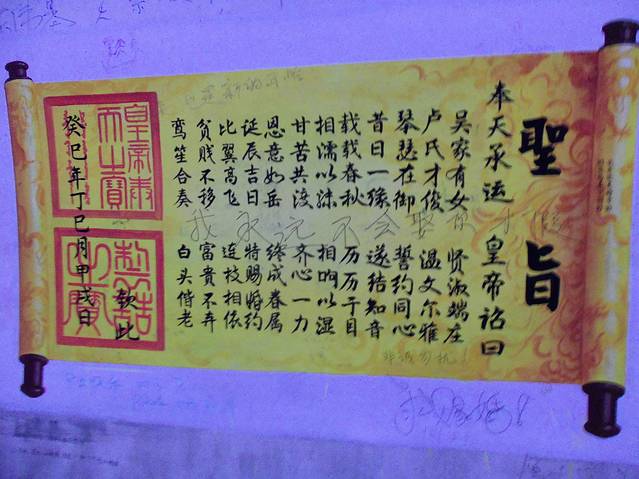 聖旨
奉天承运 皇帝诏曰
吴家有女 贤淑端庄
卢氏才俊 温文尔雅
琴瑟在御 誓约同心
昔日一缘 遂结知音
载载春秋 历历于目
相濡以沫 相呴以湿
甘苦共渡 齐心一力
恩意如岳 终成眷属
诞辰吉日 特赐婚约
比翼高飞 连枝相依
贫贱不移 富贵不弃
鸾笙合奏 白头偕老
钦此
癸巳年丁巳月甲戌日
我永远不会
非诚勿扰!